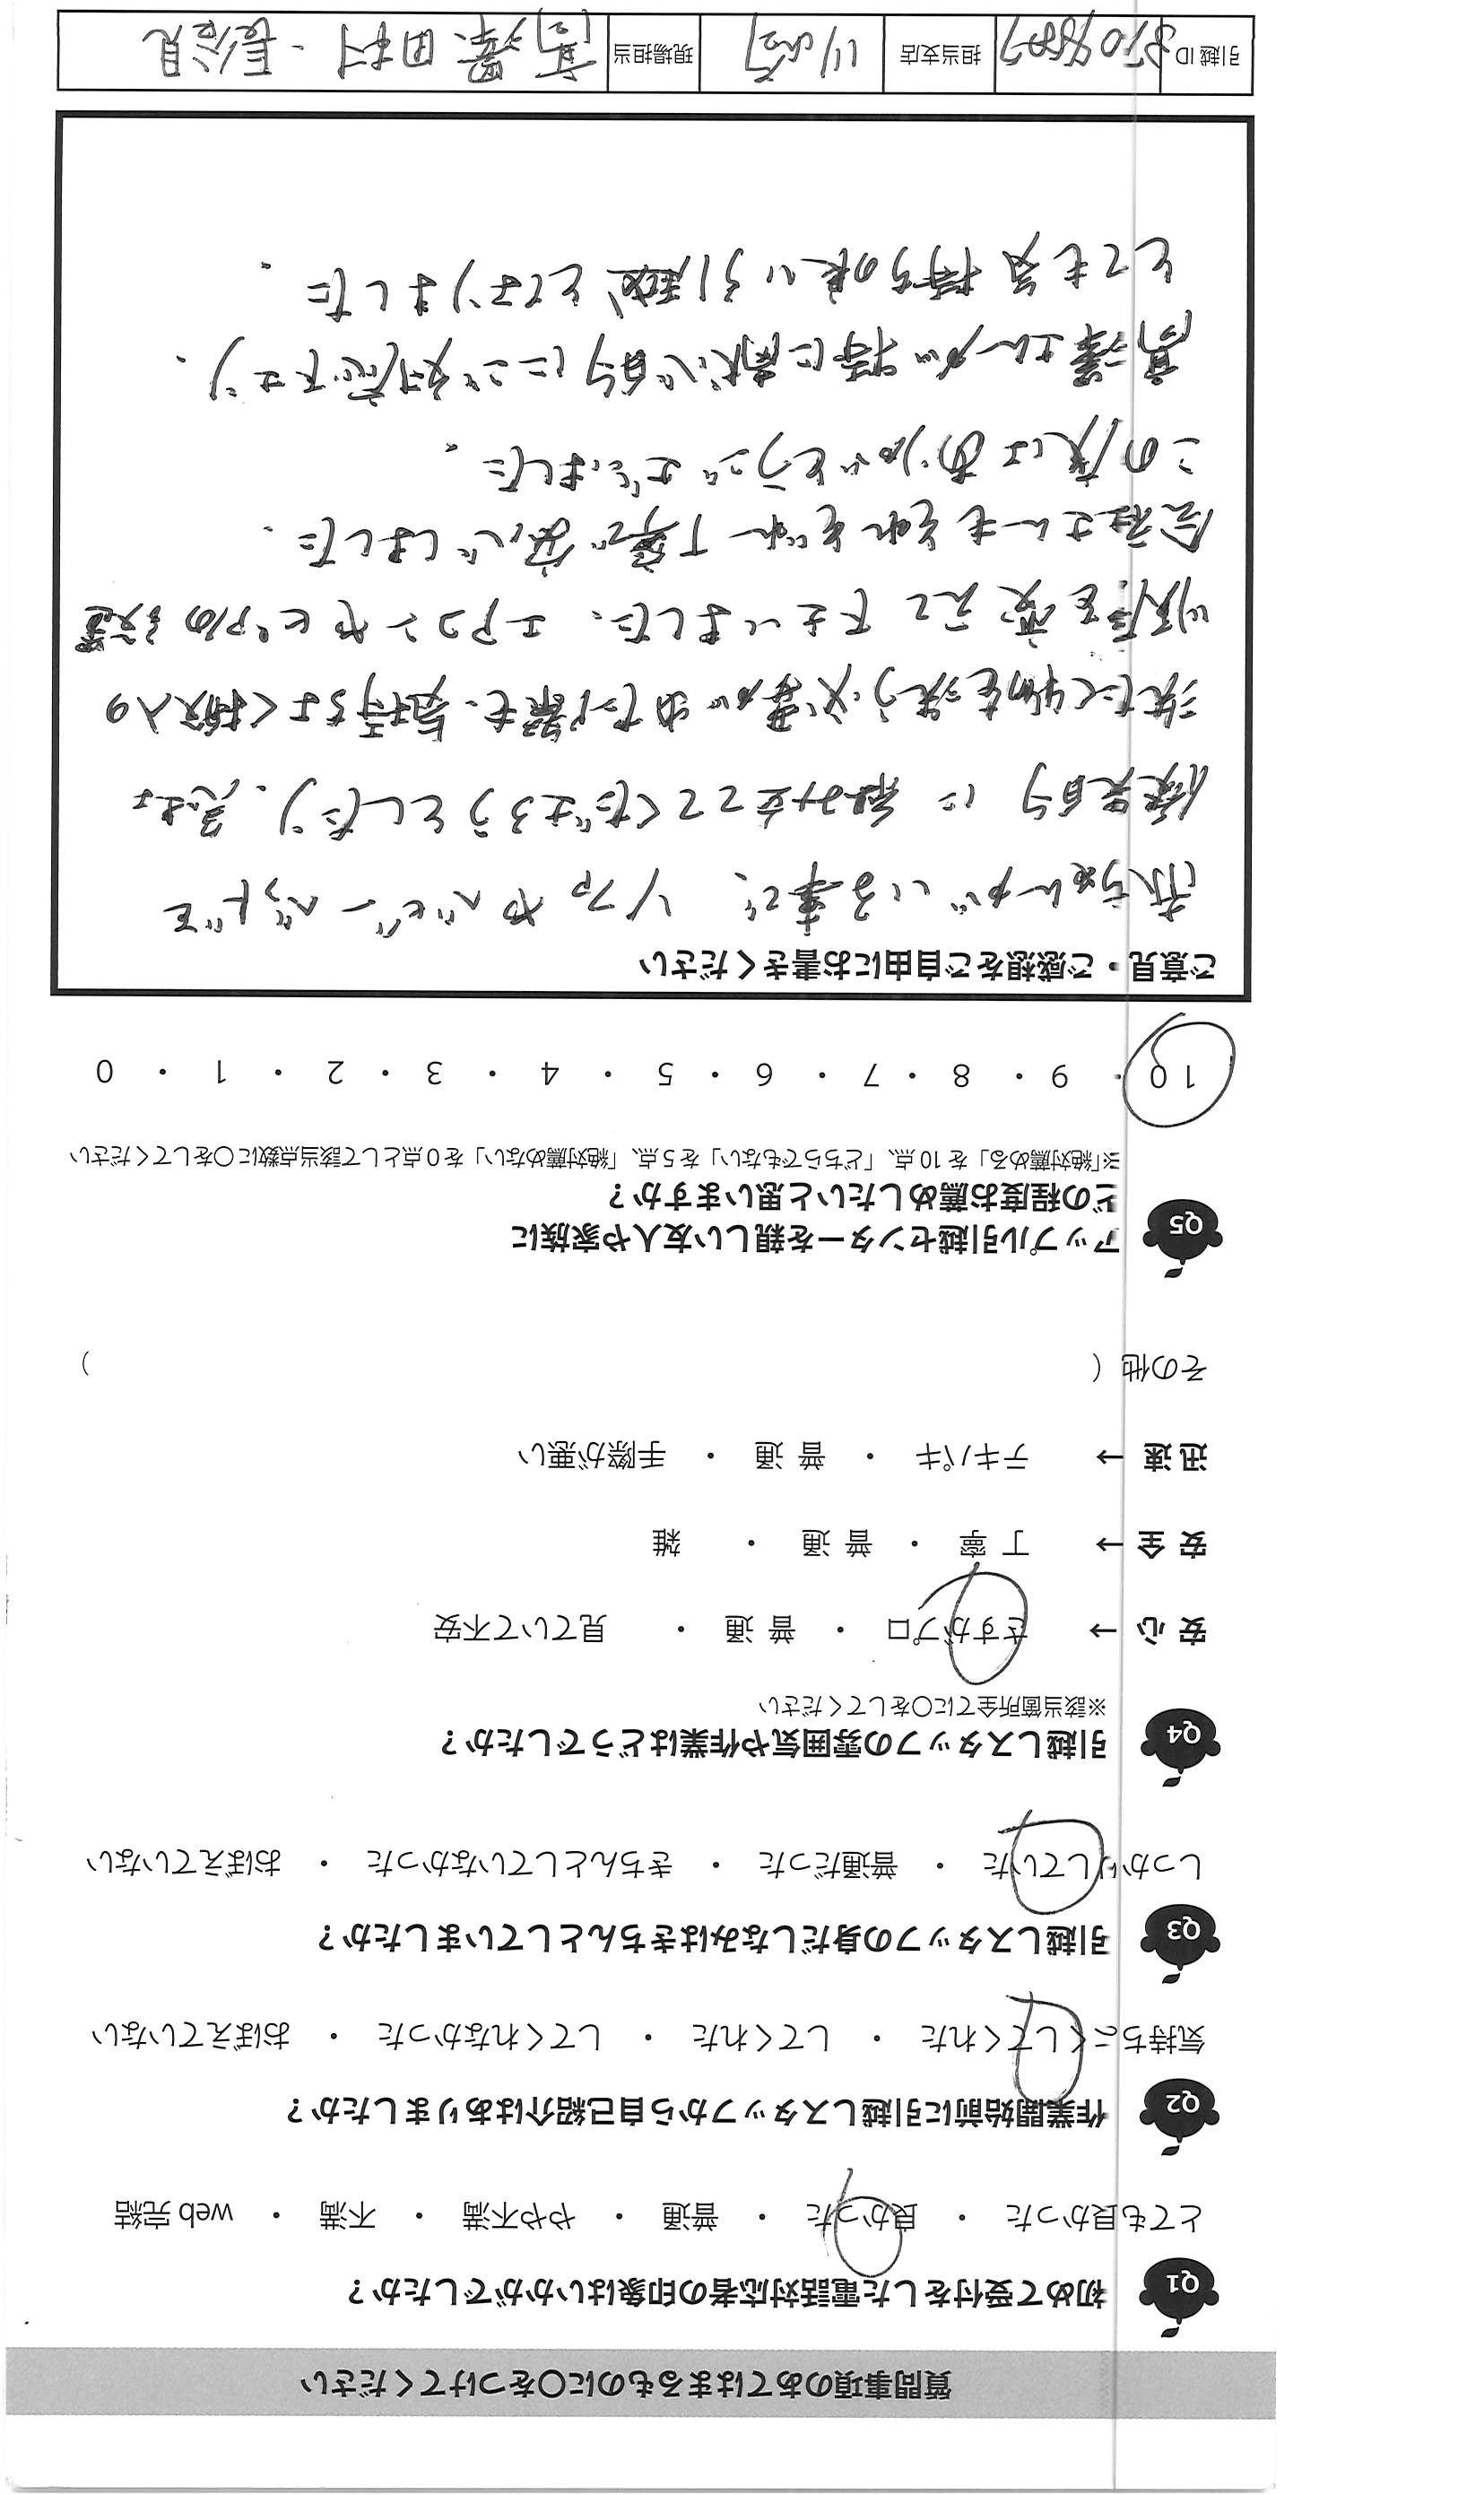 質問事項のあてはまるものに〇をつけてください
Q1 初めて受付をした電話対応者の印象はいかがでしたか？
とても良かった ・ 良かった ・ 普通 ・ やや不満 ・ 不満 ・ web 完結
Q2 作業開始前に引越しスタッフから自己紹介はありましたか？
気持ちよくしてくれた ・ してくれた ・ してくれなかった ・ おぼえていない
Q3 引越しスタッフの身だしなみはきちんとしていましたか？
しっかりしていた ・ 普通だった ・ きちんとしていなかった ・ おぼえていない
Q4 引越しスタッフの雰囲気や作業はどうでしたか？
※該当箇所全てに〇をしてください
安 心 → さすがプロ ・ 普 通 ・ 見ていて不安
安 全 → 丁 寧 ・ 普 通 ・ 雑
迅 速 → テキパキ ・ 普 通 ・ 手際が悪い
その他（ ）
Q5 アップル引越センターを親しい友人や家族に
どの程度お薦めしたいと思いますか？
※「絶対薦める」を 10 点、「どちらでもない」を 5 点、「絶対薦めない」を 0 点として該当点数に〇をしてください
10 ・ 9 ・ 8 ・ 7 ・ 6 ・ 5 ・ 4 ・ 3 ・ 2 ・ 1 ・ 0
ご意見・ご感想をご自由にお書きください
赤ちゃんがいる事で、ソファやベビーベッドを
優先的に組み立ててくださろうとしたり、急きょ
洗たく物を洗う必要が出た際も、気持ちよく搬入の
順序を変えて下さいました、エアコンやピアノの設置
会社さんもそれぞれ丁寧で安心しました。
この度はありがとうございました。
高澤さんが特に献身的にご対応下さり、
とても気持ちの良い引越となりました。
引越 ID 担当支店 川崎 現場担当 高澤、田村、長谷見